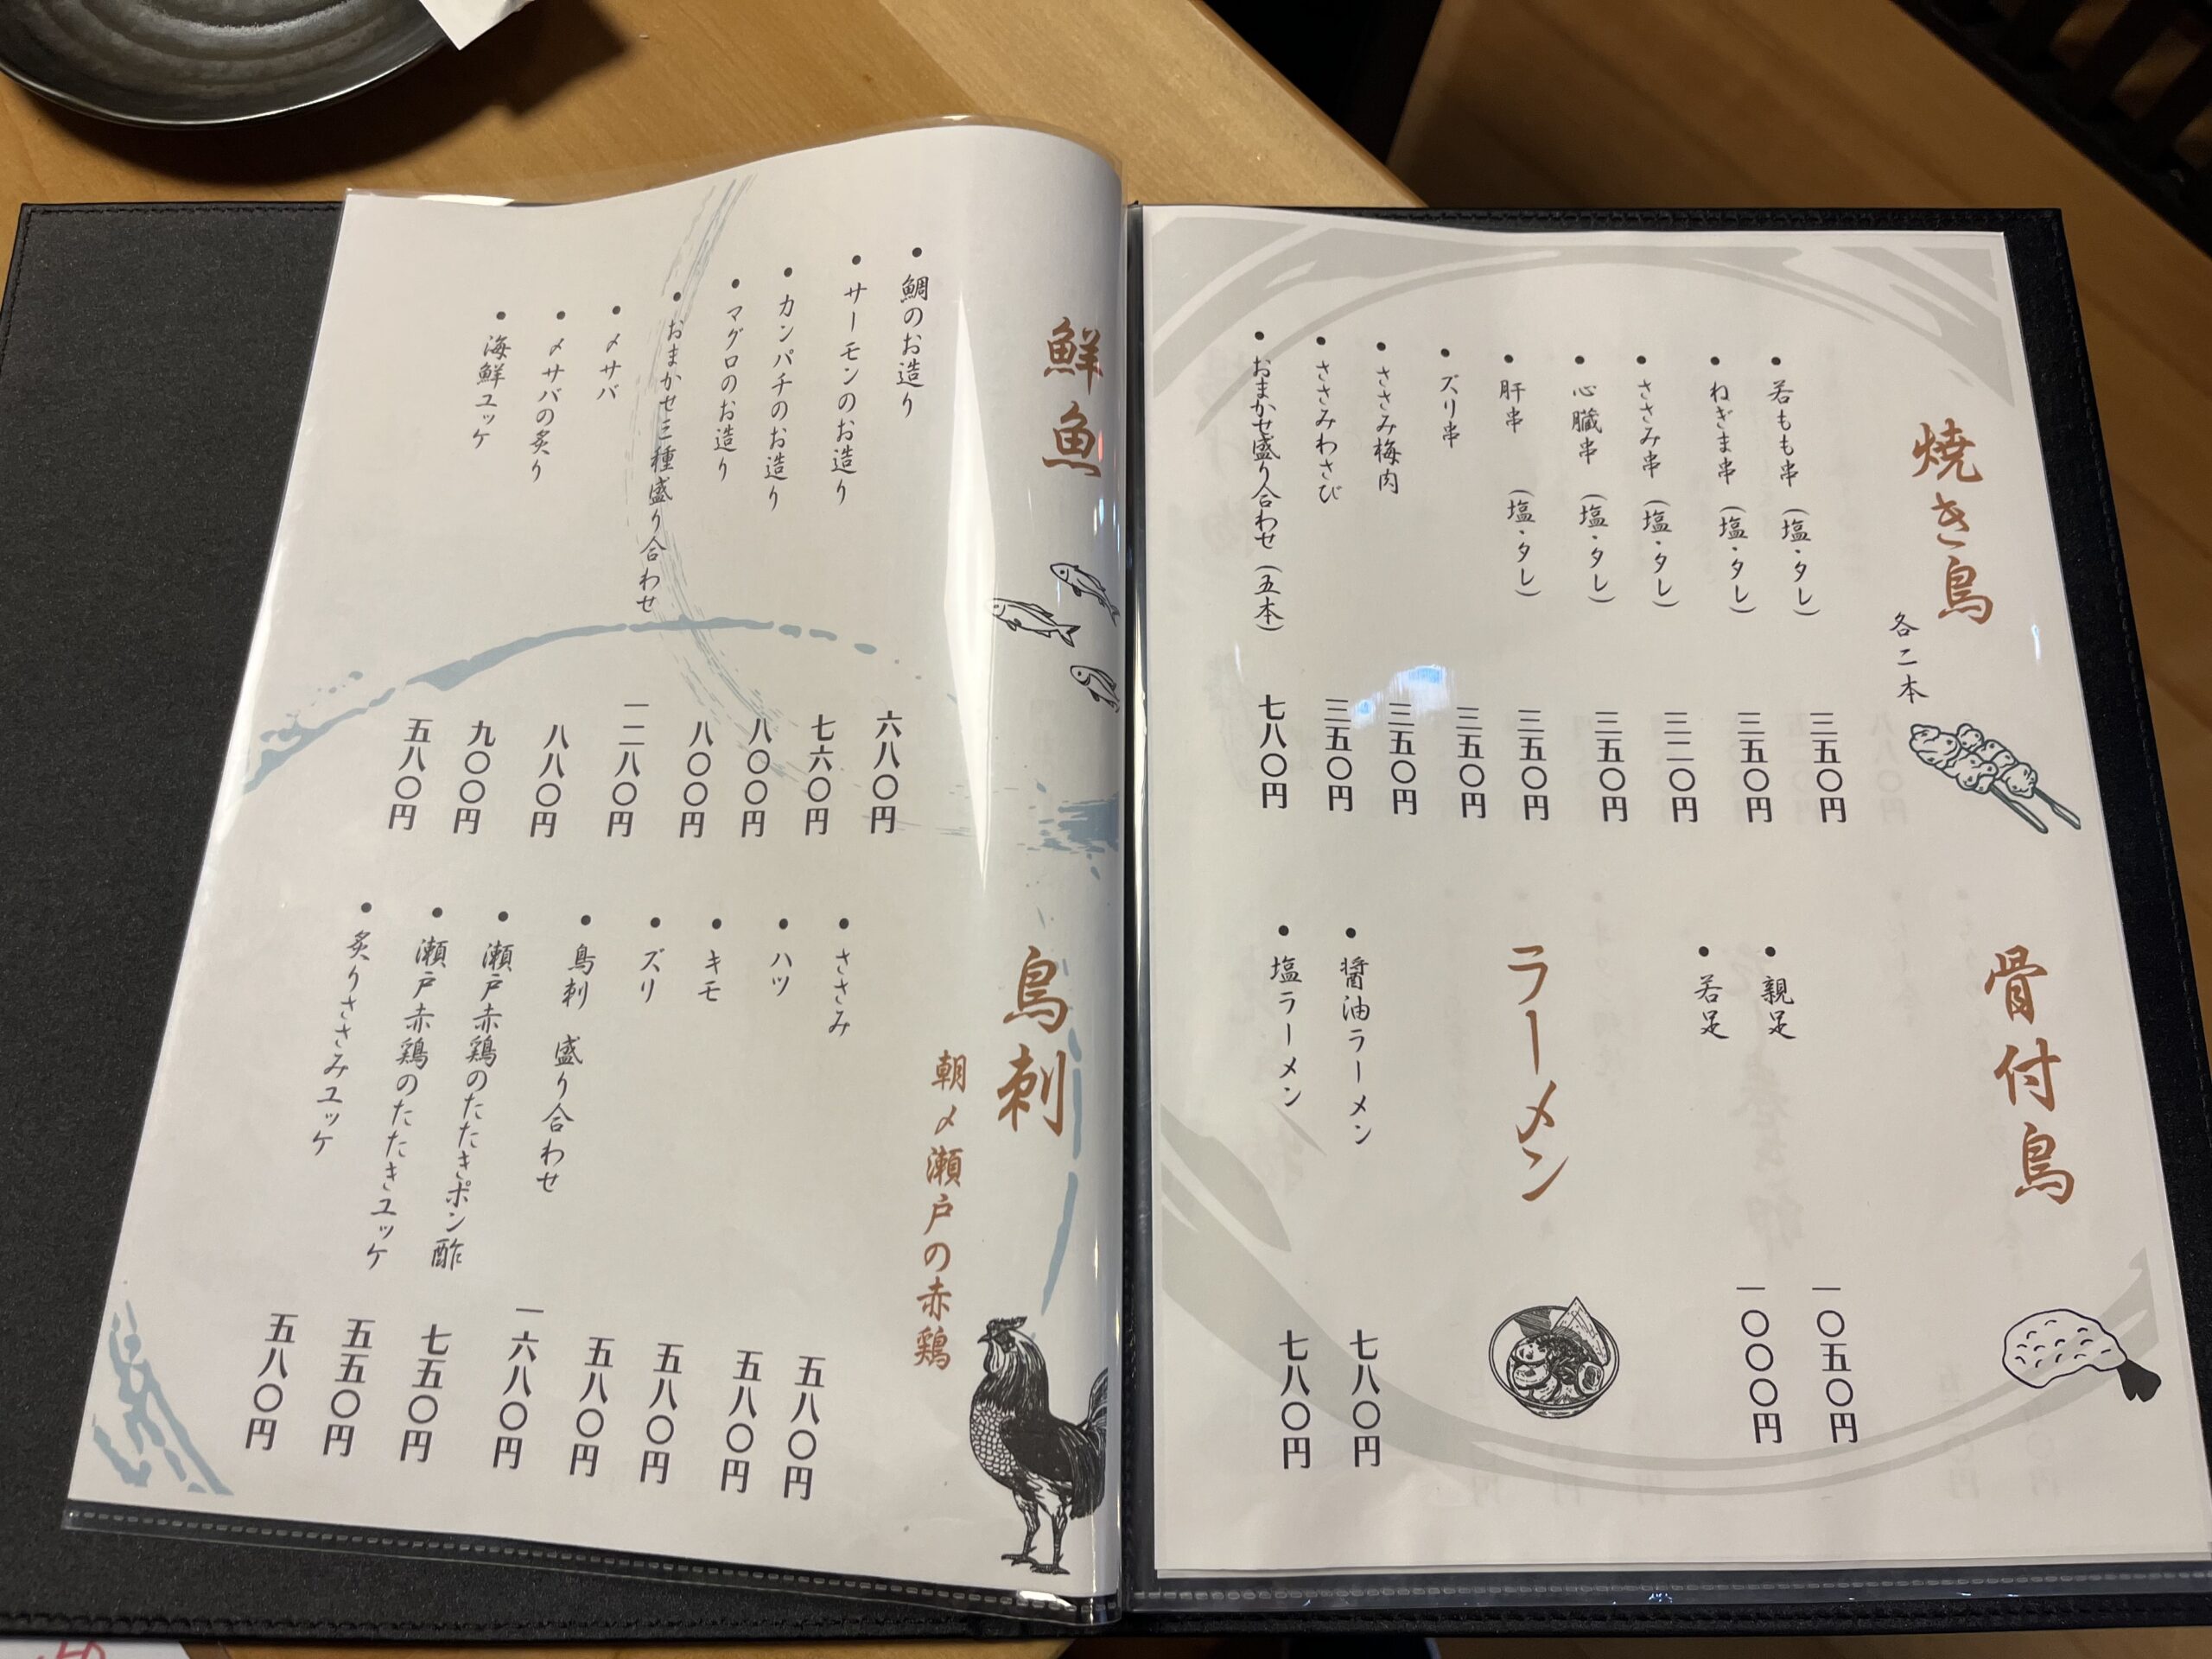 焼き鳥
各二本
・若もも串（塩・タレ） 三五〇円
・ねぎま串（塩・タレ） 三五〇円
・ささみ串（塩・タレ） 三二〇円
・心臓串（塩・タレ） 三五〇円
・肝串（塩・タレ） 三五〇円
・ズリ串 三五〇円
・ささみ梅肉 三五〇円
・ささみわさび 三五〇円
・おまかせ盛り合わせ（五本） 七八〇円
骨付鳥
・親足 一〇五〇円
・若足 一〇〇〇円
ラーメン
・醤油ラーメン 七八〇円
・塩ラーメン 七八〇円
鮮魚
・鯛のお造り 六八〇円
・サーモンのお造り 七六〇円
・カンパチのお造り 八〇〇円
・マグロのお造り 八〇〇円
・おまかせ三種盛り合わせ 一二八〇円
・〆サバ 八八〇円
・〆サバの炙り 九〇〇円
・海鮮ユッケ 五八〇円
鳥刺
朝〆瀬戸の赤鶏
・ささみ 五八〇円
・ハツ 五八〇円
・キモ 五八〇円
・ズリ 五八〇円
・鳥刺 盛り合わせ 一六八〇円
・瀬戸赤鶏のたたきポン酢 七五〇円
・瀬戸赤鶏のたたきユッケ 五五〇円
・炙りささみユッケ 五八〇円